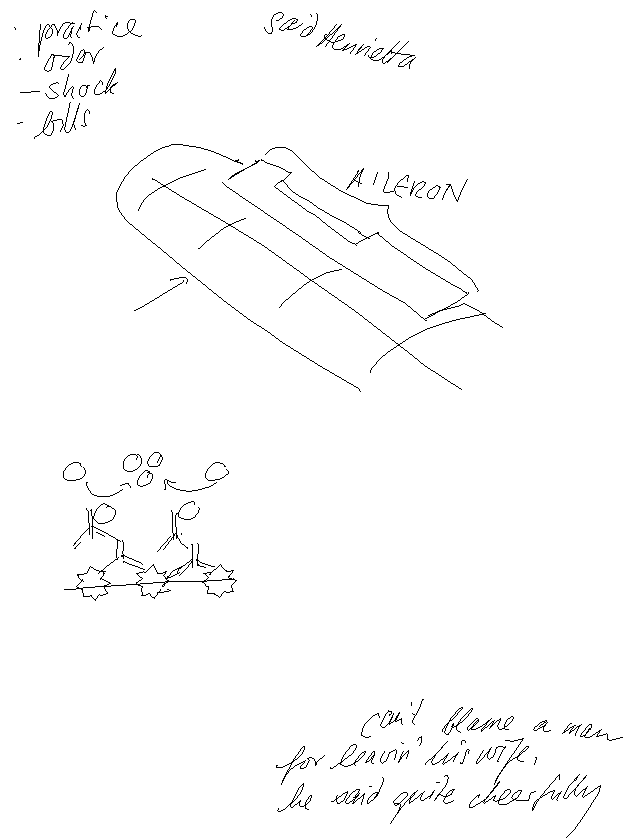 · practice
· odor
- shock
- bills
said Henrietta
AILERON
can't blame a man
for leavin' his wife,
he said quite cheerfully